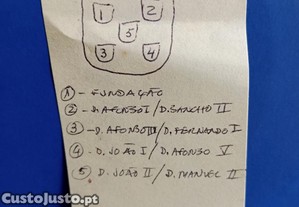 1 2
5
3 4
① - FUNDAÇÃO
② - D. AFONSO I / D. SANCHO II
③ - D. AFONSO III / D. FERNANDO I
④ - D. JOÃO I / D. AFONSO V
⑤ D. JOÃO II / D. MANUEL II
CustoJusto.pt